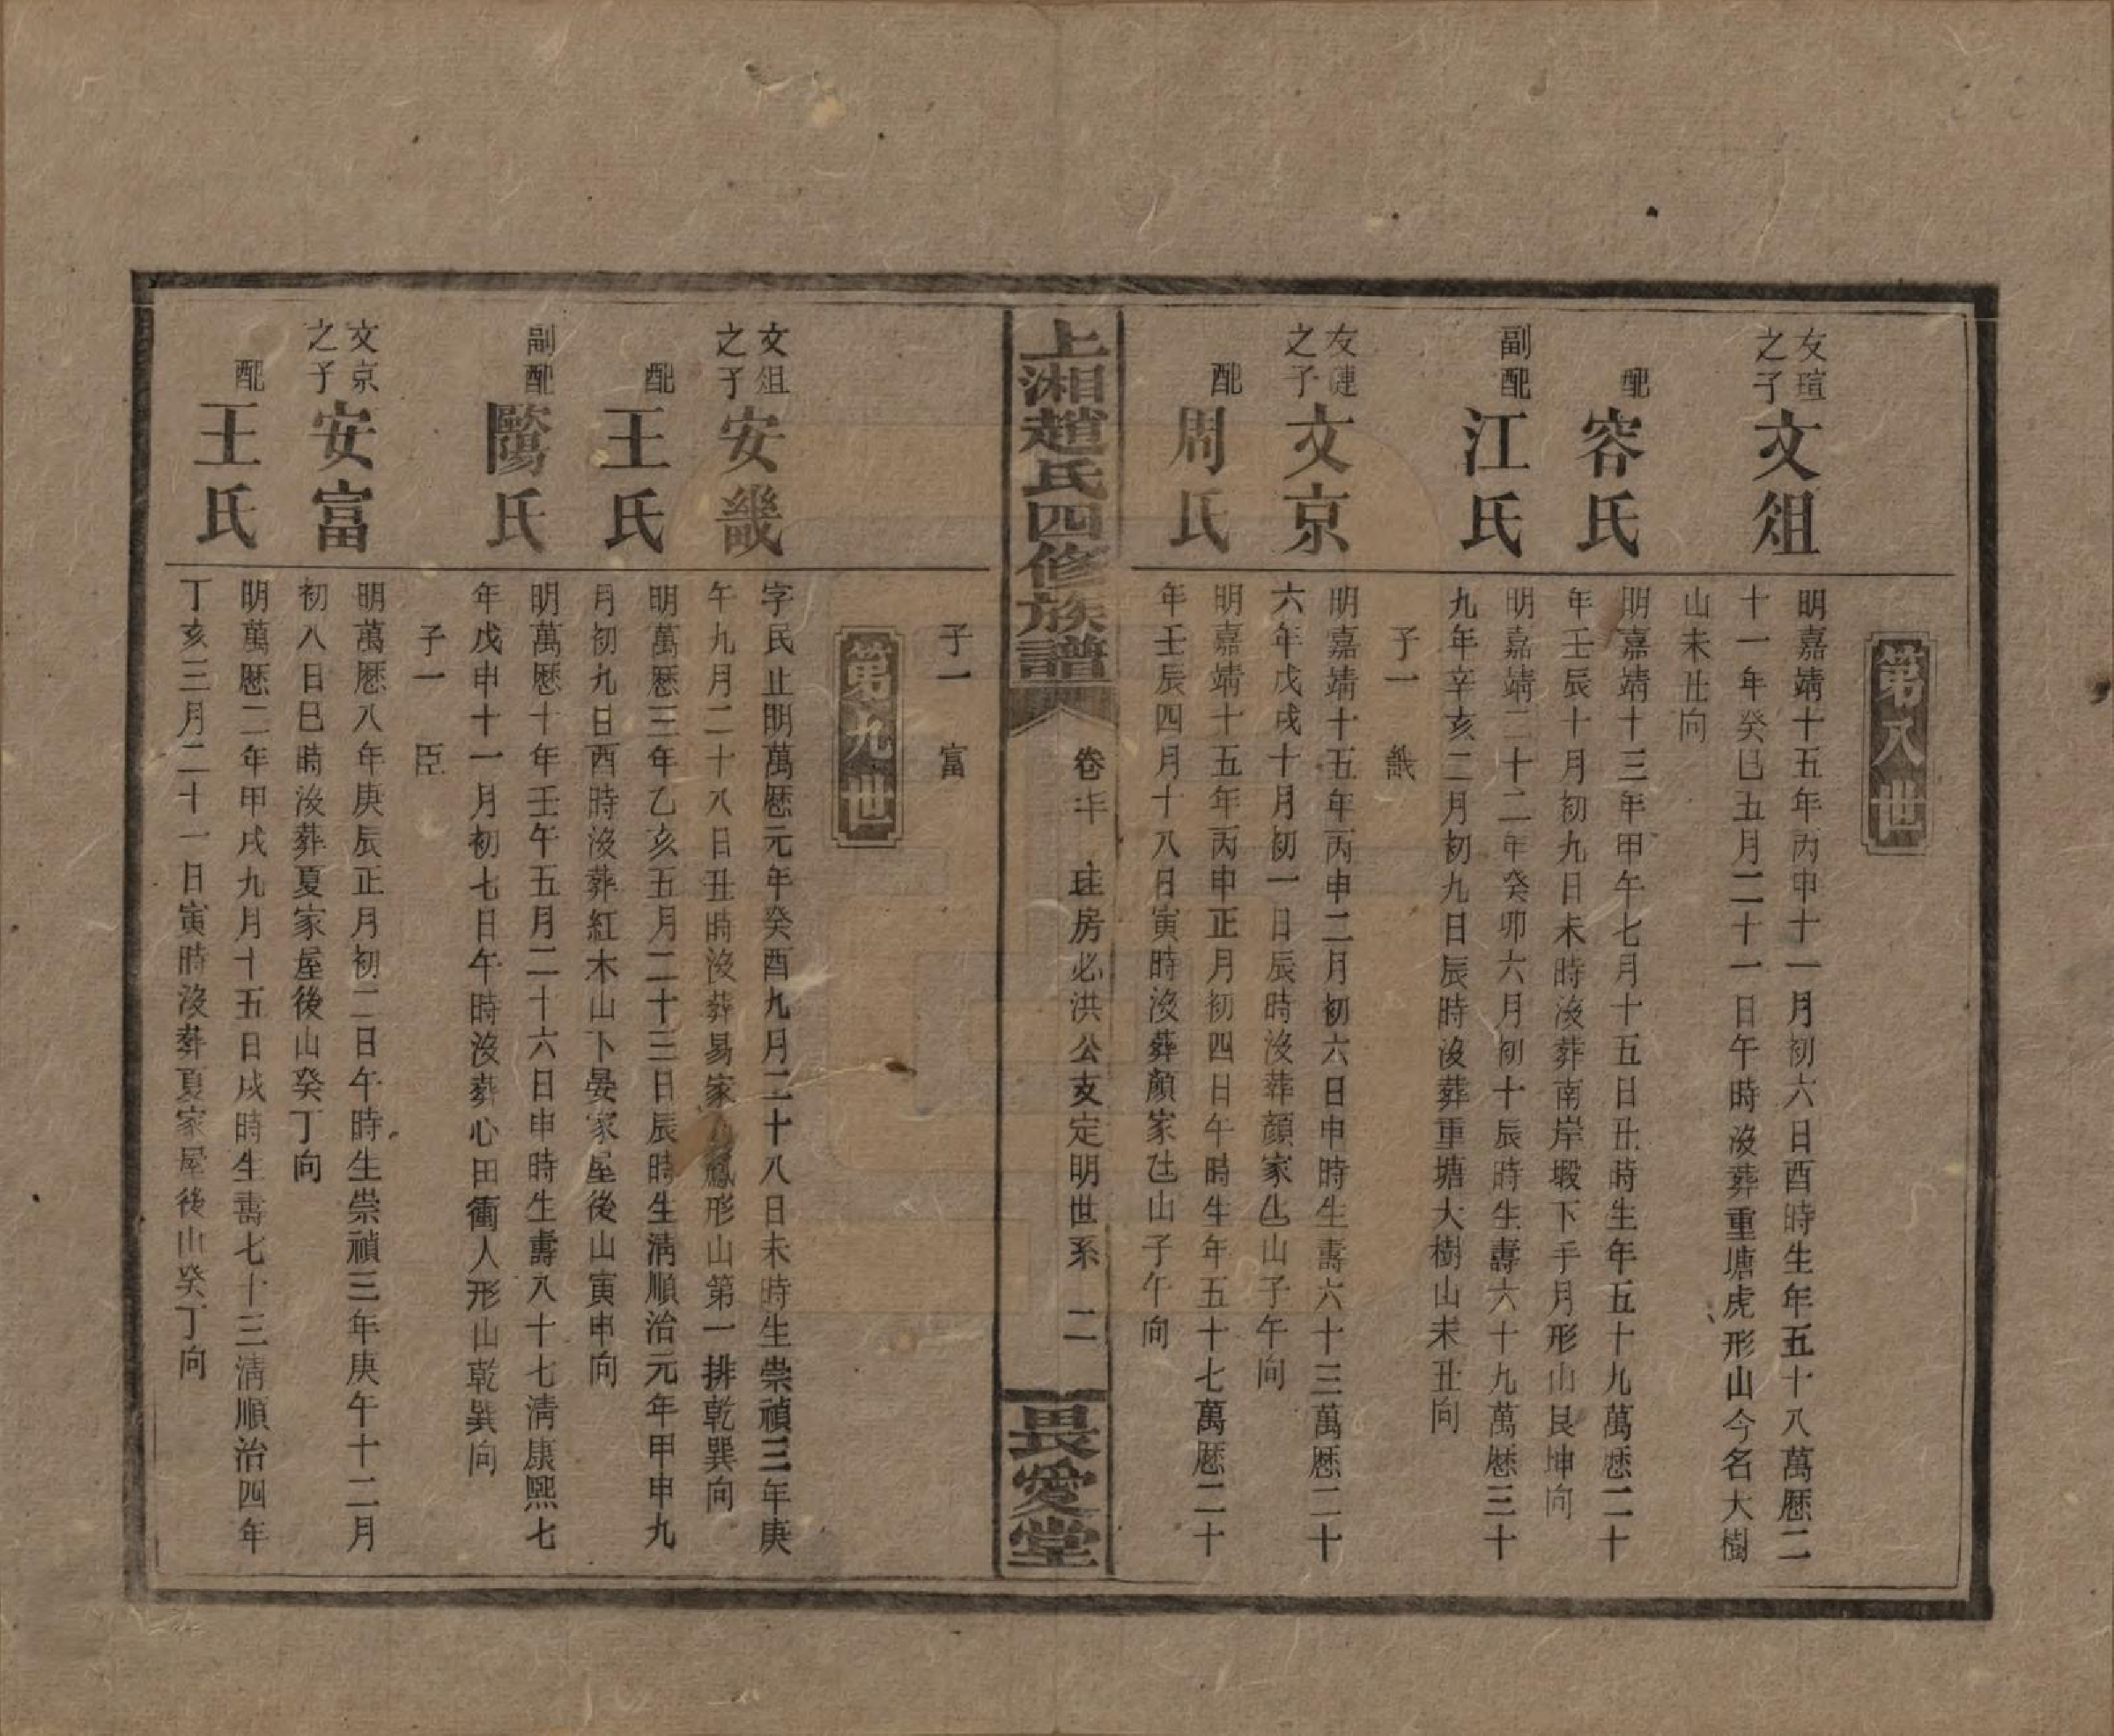 第八世
友瑄之子
文俎
明嘉靖十五年丙申十一月初六日酉時生年五十八萬歷二
十一年癸巳五月二十一日午時沒葬重塘虎形山今名大樹
山未丑向
配
容氏
明嘉靖十三年甲午七月十五日丑時生年五十九萬歷二十
年壬辰十月初九日未時沒葬南岸塅下手月形山艮坤向
副配
江氏
明嘉靖二十二年癸卯六月初十辰時生壽六十九萬歷三十
九年辛亥二月初九日辰時沒葬重塘大樹山未丑向
子一
友漣之子
文京
明嘉靖十五年丙申二月初六日申時生壽六十三萬歷二十
六年戊戌十月初一日辰時沒葬顏家山子午向
配
周氏
明嘉靖十五年丙申正月初四日午時生年五十七萬歷二十
年壬辰四月十八日寅時沒葬顏家山子午向
上湘趙氏四修族譜
卷 房必洪公支定明世系 二
畏愛堂
子一 富
第九世
文俎之子
安畿
字民止明萬歷元年癸酉九月二十八日未時生崇禎三年庚
午九月二十八日丑時沒葬易家鳳形山第一排乾巽向
配
王氏
明萬歷三年乙亥五月二十三日辰時生清順治元年甲申九
月初九日酉時沒葬紅木山下晏家屋後山寅申向
副配
陽氏
明萬歷十年壬午五月二十六日申時生壽八十七清康熙七
年戊申十一月初七日午時沒葬心田衝人形山乾巽向
子一 臣
文京之子
安富
明萬歷八年庚辰正月初二日午時生崇禎三年庚午十二月
初八日巳時沒葬夏家屋後山癸丁向
配
王氏
明萬歷二年甲戌九月十五日戌時生壽七十三清順治四年
丁亥三月二十一日寅時沒葬夏家屋後山癸丁向